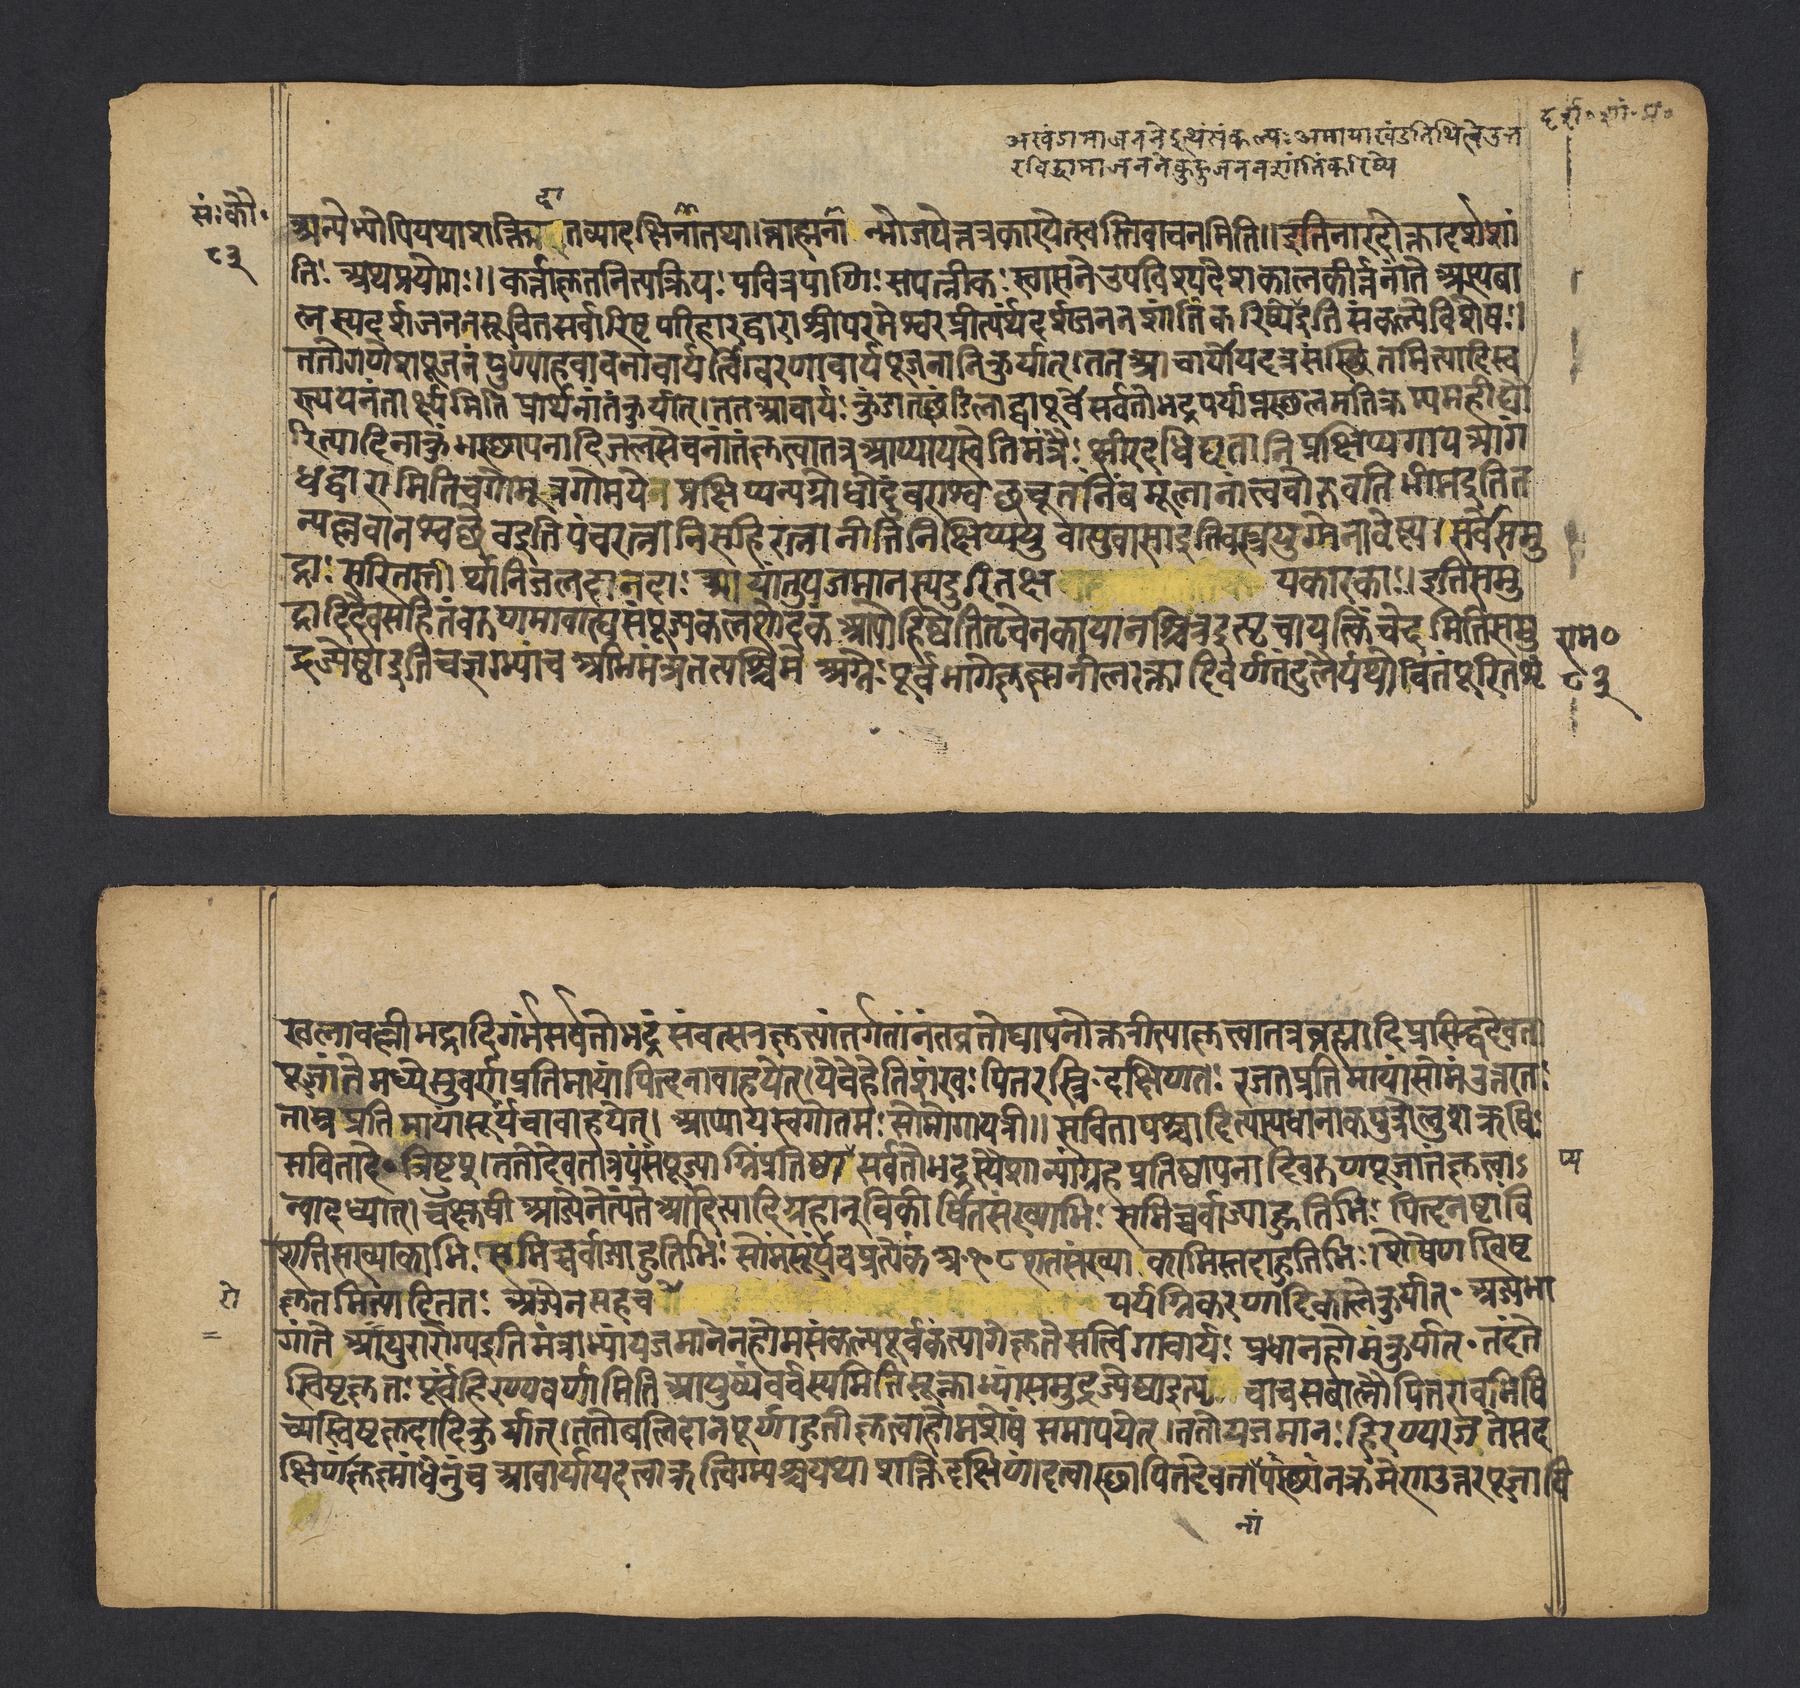 दर्श॰ शां॰ प्र॰
अखंडामाजनने इत्थं संकल्पः अमाया खंडतिथित्वे उत्त
रविद्धामाजनने कुहुजननशांतिं करिष्ये
सं॰ कौ॰
८३
अन्येभ्योपि यथाशक्ति दातव्या दक्षिणा तथा। ब्राह्मणान् भोजयेत्तत्र कारयेत्स्वस्तिवाचनमिति॥ इति नारदोक्ता दर्शशां
तिः अथ प्रयोगः॥ कर्त्ता कृतनित्यक्रियः पवित्रपाणिः सपत्नीकः स्वासने उपविश्य देशकालकीर्त्तनांते अस्य बा
लस्य दर्शजननसूचितसर्वारिष्टपरिहारद्वारा श्रीपरमेश्वरप्रीत्यर्थं दर्शजननशांतिं करिष्ये इति संकल्पे विशेषः।
ततो गणेशपूजनं पुण्याहवाचनाचार्यर्त्विग्वरणाचार्यपूजनानि कुर्यात्। तत आचार्यो यदत्र संस्थितमित्यादि स्व
स्त्ययनं तार्क्ष्यमिति प्रार्थनांतं कुर्यात्। तत आचार्यः कुंडात् स्थंडिलाद्वा पूर्वे सर्वतोभद्रपर्याप्तस्थलमतिक्रम्य महीद्यौ
रित्यादिना कुंभस्थापनादि जलसेचनांतं कृत्वा तत्र आप्यायस्वेति मंत्रैः क्षीरदधिघृतानि प्रक्षिप्य गायत्र्या गं
धद्वारामिति च गोमूत्रगोमये प्रक्षिप्य न्यग्रोधोदुंबराश्वत्थचूतनिंबमूलानां त्वचो रुवति भीम इति त
न्पल्लवानश्वत्थेव इति पंचरत्नानि सहिरत्नानीति निक्षिप्य युवासुवासा इति वस्त्रयुग्मेनावेष्ट्य। सर्वे समु
द्राः सरितस्तीर्थानि जलदा नदाः आयांतु यजमानस्य दुरितक्ष यकारकाः। इति समु
द्रादिदेवसहितं वरुणमावाह्य संपूज्य कलशोदकं आपोहिष्ठेति तृचेन कयानश्चित्र इत्यृचा यत्किंचेदमिति समु
द्रज्येष्ठा इति च ऋग्भ्यां च अभिमंत्र्य तत्पश्चिमे अग्नेः पूर्वभागे कृष्णनीलरक्तादिवर्णतंडुलैर्यथोचितं पूरितशृं
राम०
८३
खलावल्लीभद्रादिगर्भं सर्वतोभद्रं संवत्सरकृत्यांतर्गतानंतव्रतोद्यापनोक्तरीत्या कृत्वा तत्र ब्रह्मादिप्रसिद्धदेवता
पूजांते मध्ये सुवर्णप्रतिमायां पितॄनावाहयेत् येचेहेति शंखः पितरस्त्रि॰ दक्षिणतः रजतप्रतिमायां सोमं उत्तरतः
ताम्रप्रतिमायां सूर्यं चावाहयेत्। आप्यायस्व गोतमः सोमो गायत्री॥ सविता पश्चादित्यस्य धानाकपुत्रो लुश ऋषिः
सविताहे॰ त्रिष्टुप्। ततो देवतात्रयं संपूज्याग्निं प्रतिष्ठाप्य सर्वतोभद्रस्यैशान्यां ग्रहप्रतिष्ठापनादि वरुणपूजांतं कृत्वाऽ
न्वादध्यात्। चक्षुषी आज्येनेत्यंते आदित्यादिग्रहान् चिकीर्षितसंख्याभिः समिच्चर्वाज्याहुतिभिः पितॄनष्टावि
ंशतिसंख्याकाभिः समिच्चर्वाज्याहुतिभिः सोमं सूर्यं च प्रत्येकं अ १०८ शतसंख्या काभिस्तदाहुतिभिः शेषेण स्विष्ट
कृतमित्यादि ततः आज्येन सह च रो पर्यग्निकरणादिकाले कुर्यात्॰ आज्यभा
गांते आयुरारोग्य इति मंत्राभ्यां यजमानेन होमसंकल्पपूर्वकं त्यागे कृते सर्त्विगाचार्यः प्रधानहोमं कुर्यात्॰ तदंते
स्विष्टकृतः पूर्वं हिरण्यवर्णामिति आयुष्यं वर्चस्यमिति सूक्ताभ्यां समुद्रज्येष्ठा इत्यृ चा च सर्वात्नौ पितराव
च्य स्विष्टकृदादि कुर्यात्। ततो बलिदानपूर्णाहुती कृत्वा होमशेषं समापयेत्। ततो यजमानः हिरण्यं रजतं सद
क्षिणं कृष्णां धेनुं च आचार्याय दत्त्वा ऋत्विग्भ्यश्च यथाशक्ति दक्षिणां दत्वा स्थापितदेवतानां स्थापनक्रमेण उत्तरपूजां वि